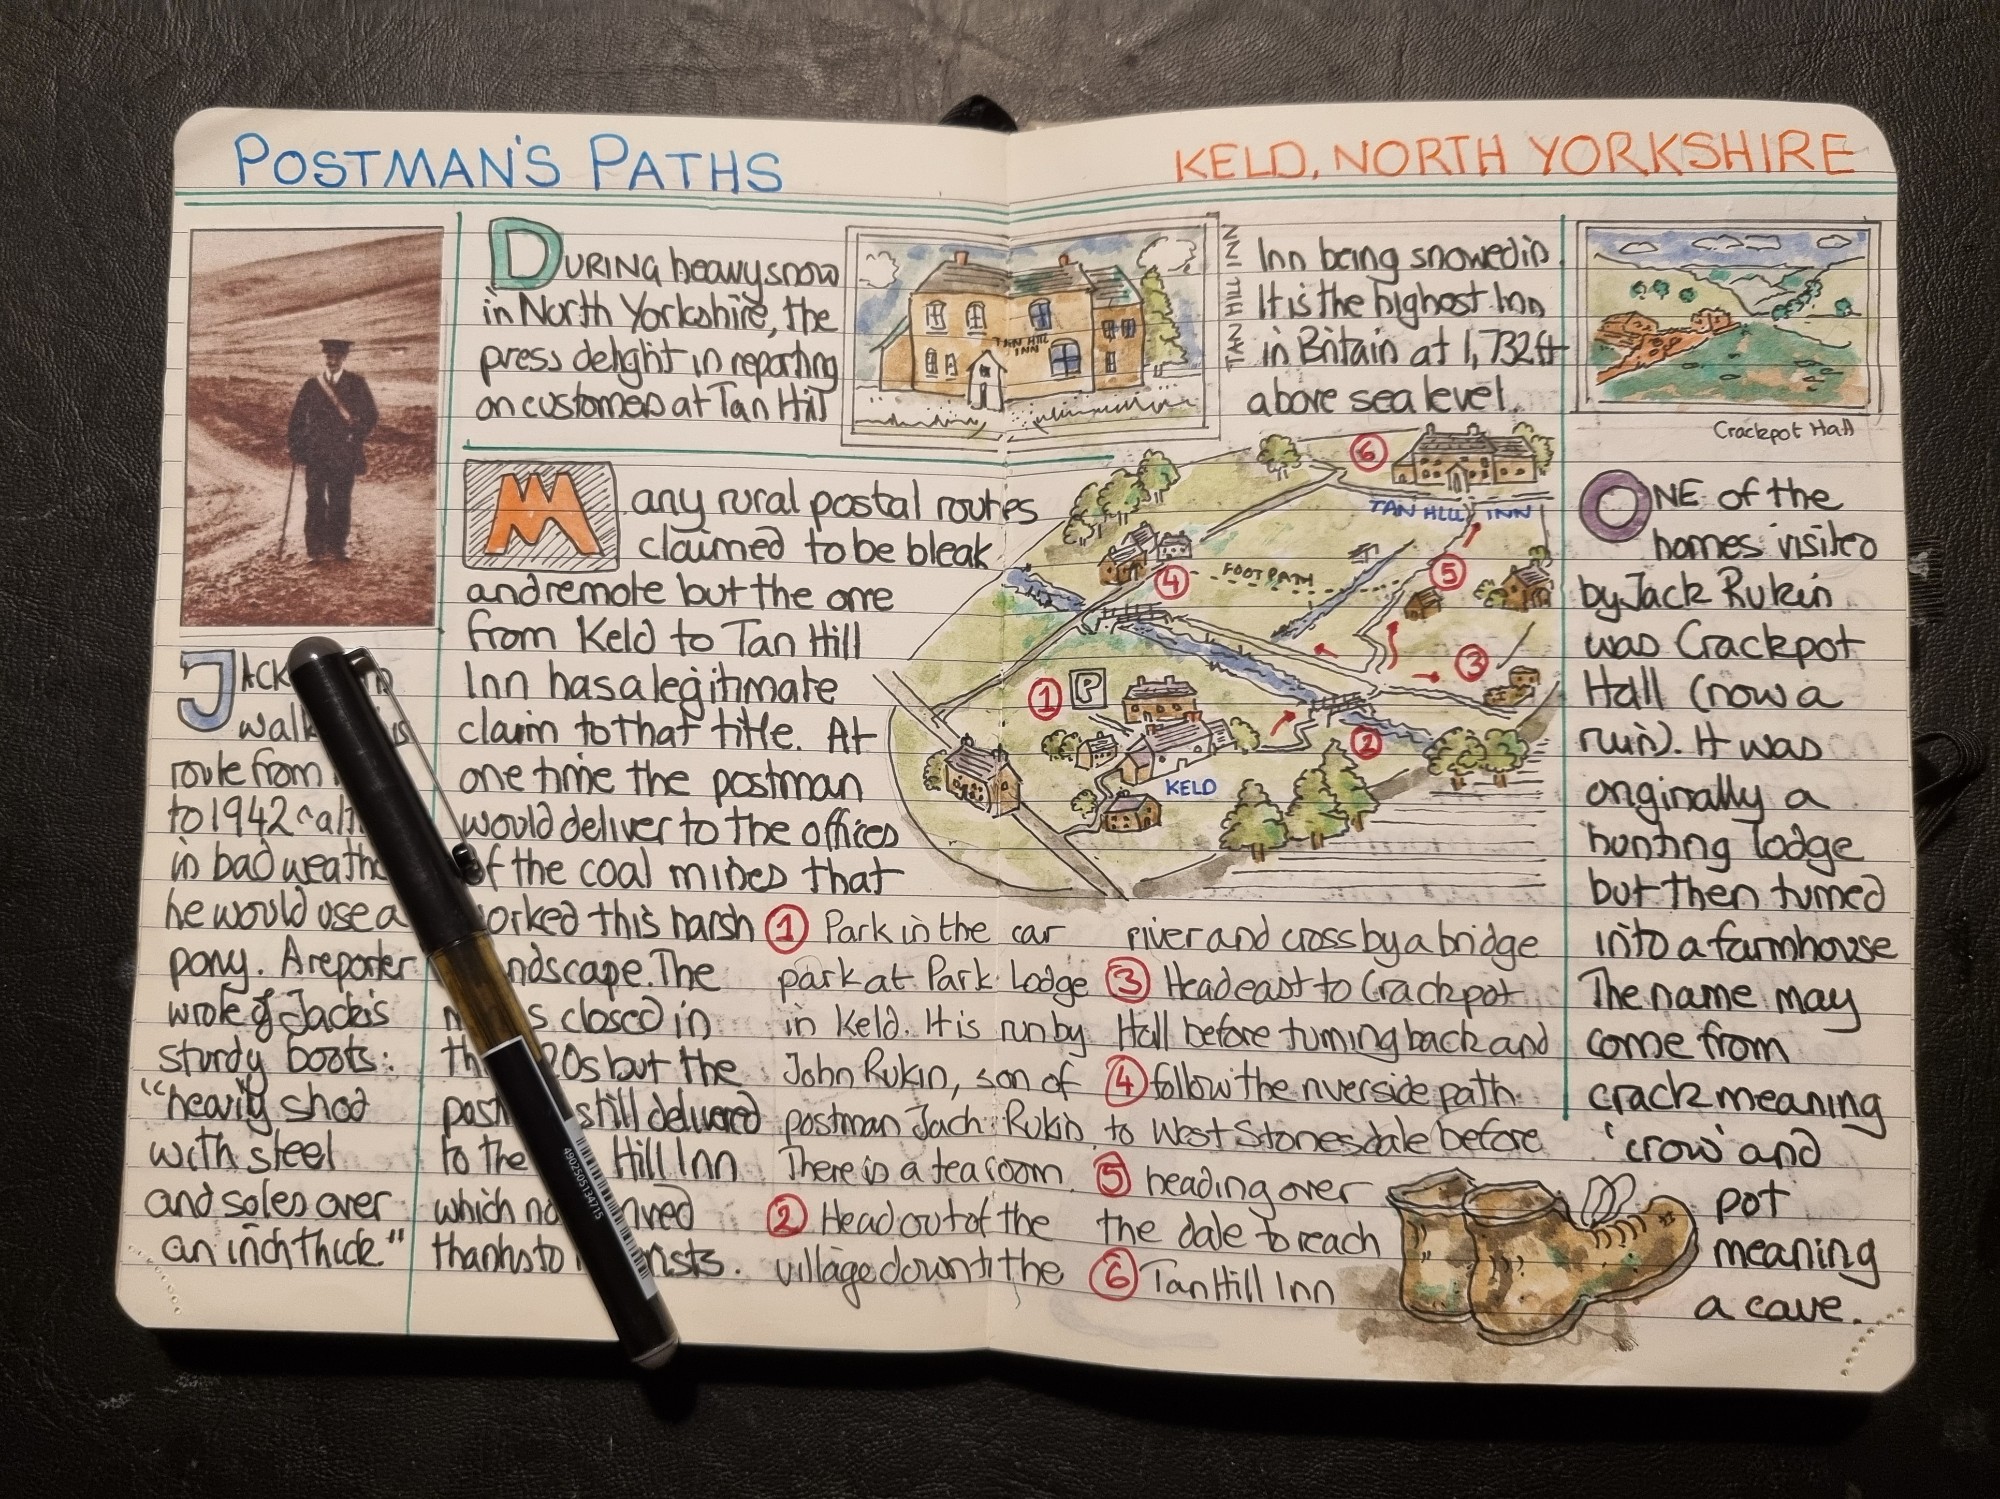 POSTMAN'S PATHS
KELD, NORTH YORKSHIRE
DURING heavy snow
in North Yorkshire, the
press delight in reporting
on customers at Tan Hill
TAN HILL
INN
TAN HILL INN
Inn being snowed in.
It is the highest Inn
in Britain at 1,732ft
above sea level.
Crackpot Hall
JACK
walk
route from
to 1942
in bad weather
he would use a
pony. A reporter
wrote of Jack's
sturdy boots:
"heavily shod
with steel
and soles over
an inch thick"
Many rural postal routes
claimed to be bleak
and remote but the one
from Keld to Tan Hill
Inn has a legitimate
claim to that title. At
one time the postman
would deliver to the offices
of the coal mines that
worked this harsh
landscape. The
closed in
but the
still delivered
to the Hill Inn
which
thanks to
6
TAN HILL INN
4
FOOTPATH
5
3
1 P
2
KELD
1 Park in the car
park at Park Lodge
in Keld. It is run by
John Rukin, son of
postman Jack Rukin.
There is a tea room.
2 Head out of the
village down to the
river and cross by a bridge
3 Head east to Crackpot
Hall before turning back and
4 follow the riverside path
to West Stonesdale before
5 heading over
the dale to reach
6 Tan Hill Inn
ONE of the
homes visited
by Jack Rukin
was Crackpot
Hall (now a
ruin). It was
originally a
hunting lodge
but then turned
into a farmhouse
The name may
come from
crack meaning
'crow' and
pot
meaning
a cave.
4902505134715